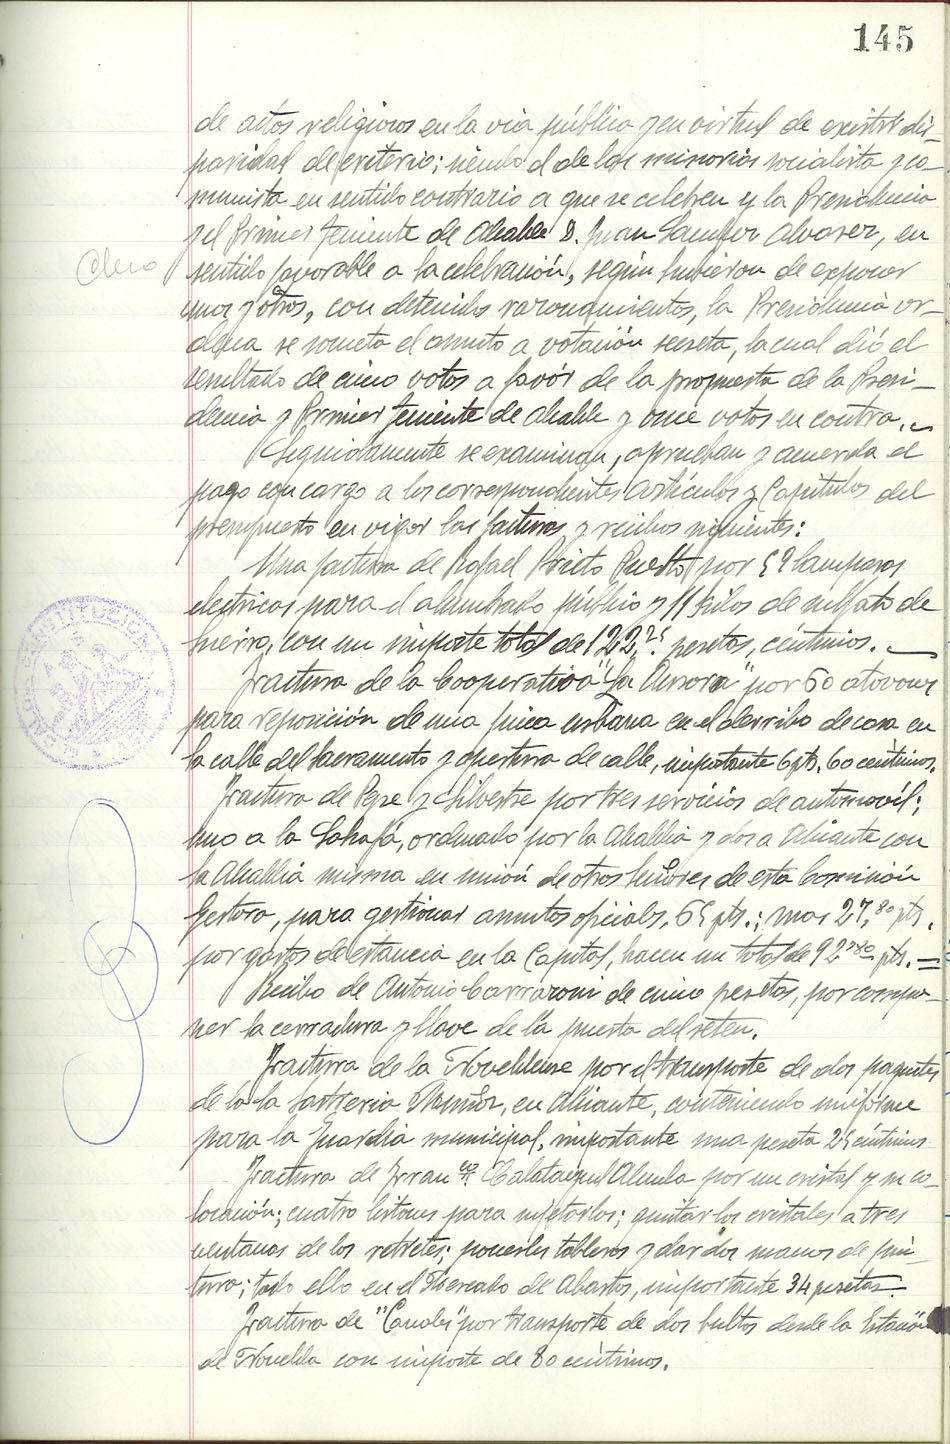 145
de actos religiosos en la via pública y en virtud de existir dis-
paridad de criterio; siendo el de las minorias socialista y co-
munista en sentido contrario a que se celebren y la Presidencia
y el Primer Teniente de Alcalde D. Juan Sempere Alvarez, en
Clero
sentido favorable a la celebración, según hubieron de exponer
unos y otros, con detenidos razonamientos, la Presidencia or-
dena se someta el asunto a votación secreta, la cual dió el
resultado de cinco votos a favor de la propuesta de la Presi-
dencia y Primer Teniente de Alcalde y once votos en contra.
Seguidamente se examinan, aprueban y acuerda el
pago con cargo a los correspondientes Artículos y Capítulos del
presupuesto en vigor las facturas y recibos siguientes:
Una factura de Rafael Prieto Puerto por 59 lamparas
electricas para el alumbrado público y 11 kilos de sulfato de
hierro, con un importe total de 122,25 pesetas, céntimos.
Factura de la Cooperativa "La Aurora" por 60 atovones
para reposición de una finca urbana en el derribo de casa en
la calle del Sacramento y apertura de calle, importante 6 pts. 60 centimos.
Factura de Pepe y Silvestre por tres servicios de automovil;
uno a la Sahafa, ordenado por la Alcaldia y dos a Alicante con
la Alcaldia misma en unión de otros Señores de esta Comisión
Gestora, para gestionar asuntos oficiales, 65 pts.; mas 27,80 pts.
por gastos de estancia en la Capital, hacen un total de 92,80 pts.
Recibo de Antonio Carrazoni de cinco pesetas, por compo-
ner la cerradura y llave de la puerta del reten.
Factura de la Noveldense por el transporte de dos paquetes
de la la Sastreria Muñoz, en Alicante, conteniendo uniforme
para la Guardia municipal, importante una peseta 25 céntimos
Factura de Franco. Calatayud Alenda por un cristal y su co-
locación; cuatro listones para sujetarlos; quitar los cristales a tres
ventanas de los retretes; ponerles tableros y dar dos manos de pin-
tura; todo ello en el Mercado de Abastos, importante 34 pesetas.
Factura de "Canoles" por transporte de dos bultos desde la Estación
de Novelda con importe de 80 céntimos.